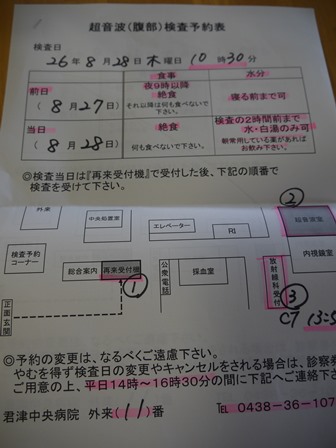 超音波（腹部）検査予約表
検査日
26年 8月28日 木曜日 10時30分
食事 水分
前日
（8月27日）
夜9時以降
絶食
それ以降は何も食べないで
下さい。
寝る前まで可
当日
（8月28日）
絶食
何も食べないで下さい。
検査の2時間前まで
水・白湯のみ可
朝常用している薬があれば
お飲み下さい。
◎検査当日は『再来受付機』で受付した後、下記の順番で
検査を受けて下さい。
②
外来
中央処置室
エレベーター
RI
超音波室
検査予約
コーナー
総合案内
再来受付機
①
公衆電話
採血室
放射線科受付
内視鏡室
③
正面玄関
CT
◎予約の変更は、なるべくご遠慮下さい。
やむを得ず検査日の変更やキャンセルをされる場合は、診察券
ご用意の上、平日14時～16時30分の間に下記へご連絡下
君津中央病院 外来（11）番
TEL 0438-36-107